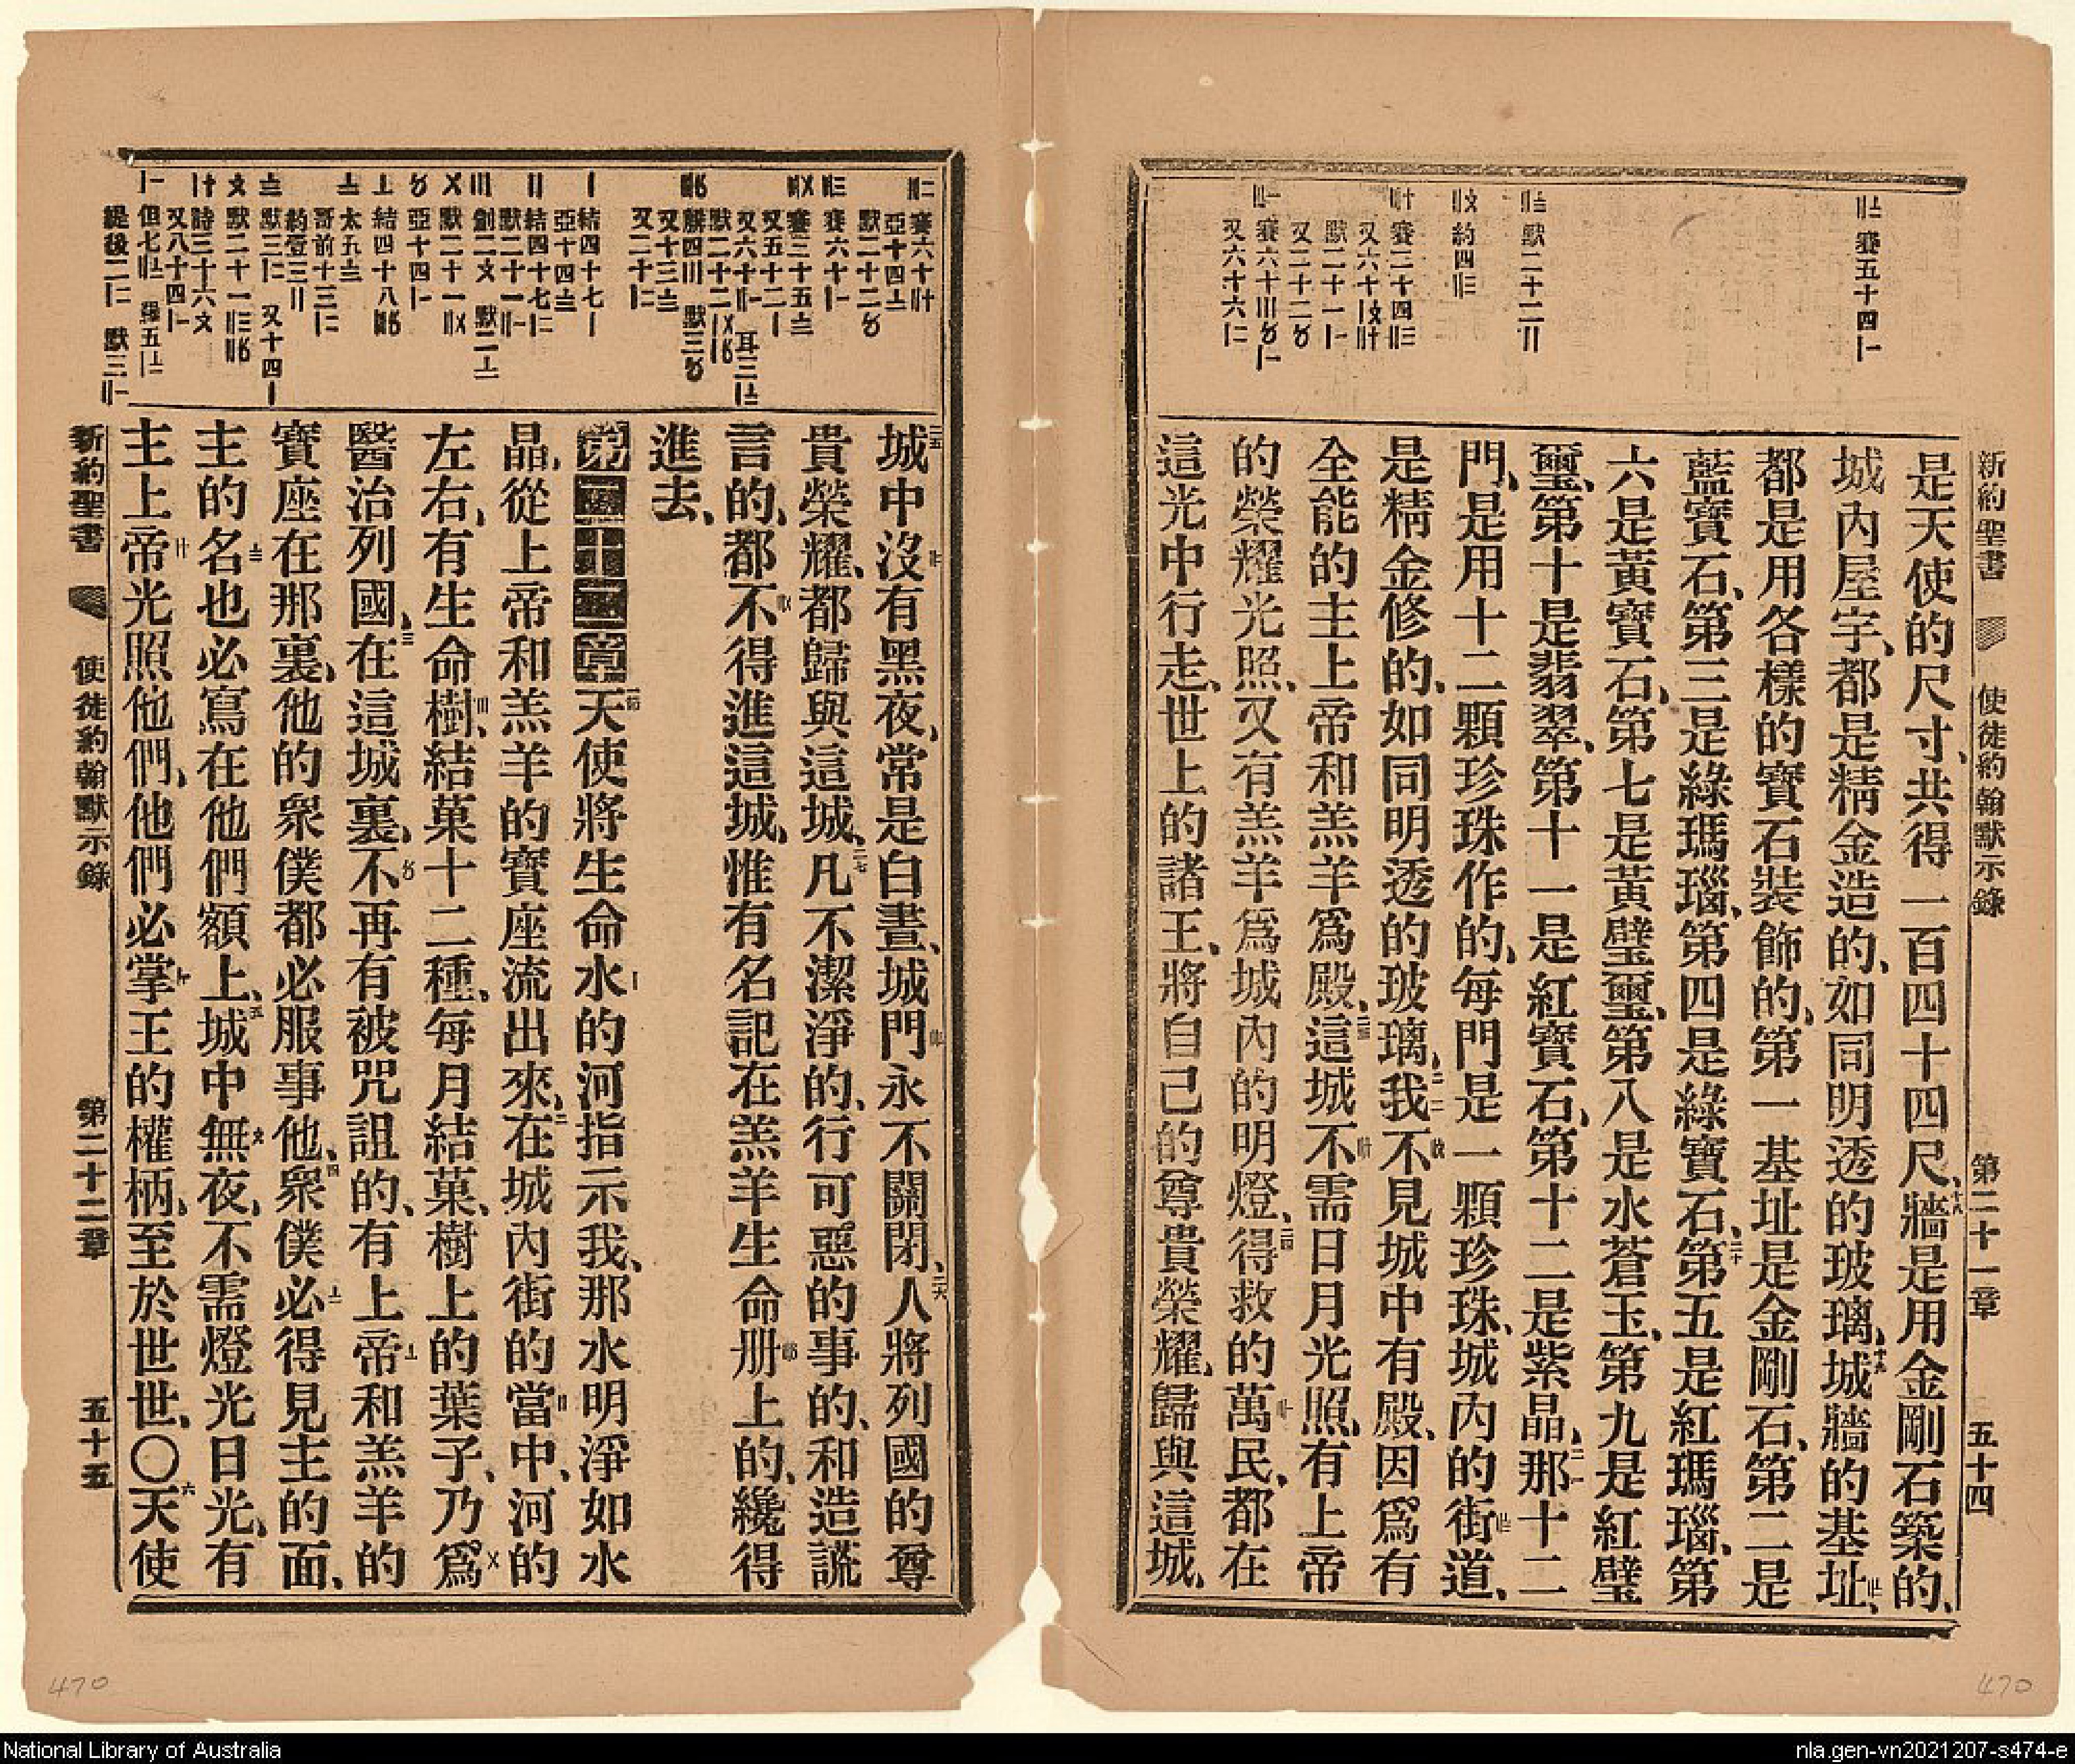 新約聖書 使徒約翰默示錄 第二十一章 五十四
〢〦 賽五十四〡
〢〨 默二十二〢
〢〩 約四〢〣
〢〸 賽二十四〢〣
又六十〡〩〢〸
默二十一〡
又二十二〥
〢〡 賽六十〣〥〡
又六十六〡二
是天使的尺寸、共得一百四十四尺、十八牆是用金剛石築的、
城內屋宇、都是精金造的、如同明透的玻璃、十九城牆的基址、
都是用各樣的寶石裝飾的、第一基址是金剛石、第二是
藍寶石、第三是綠瑪瑙、第四是綠寶石、二十第五是紅瑪瑙、第
六是黃寶石、第七是黃璧璽、第八是水蒼玉、第九是紅璧
璽、第十是翡翠、第十一是紅寶石、第十二是紫晶、二一那十二
門、是用十二顆珍珠作的、每門是一顆珍珠、城內的街道、
是精金修的、如同明透的玻璃、二二我不見城中有殿、因爲有
全能的主上帝和羔羊爲殿、二三這城不需日月光照、有上帝
的榮耀光照、又有羔羊爲城內的明燈、二四得救的萬民、都在
這光中行走、世上的諸王、將自己的尊貴榮耀、歸與這城、
二五城中沒有黑夜、常是白晝、城門永不關閉、二六人將列國的尊
貴榮耀、都歸與這城、二七凡不潔淨的、行可惡的事的、和造謊
言的、都不得進這城、惟有名記在羔羊生命册上的、纔得
進去、
第二十二章 一天使將生命水的河指示我、那水明淨如水
晶、從上帝和羔羊的寶座流出來、二在城內街的當中、河的
左右、有生命樹、結菓十二種、每月結菓、樹上的葉子、乃爲
醫治列國、三在這城裏、不再有被咒詛的、有上帝和羔羊的
寶座在那裏、他的衆僕都必服事他、四衆僕必得見主的面、
主的名也必寫在他們額上、五城中無夜、不需燈光日光、有
主上帝光照他們、他們必掌王的權柄、至於世世、〇六天使
新約聖書 使徒約翰默示錄 第二十二章 五十五
470
470
National Library of Australia
nla.gen-vn2021207-s474-e